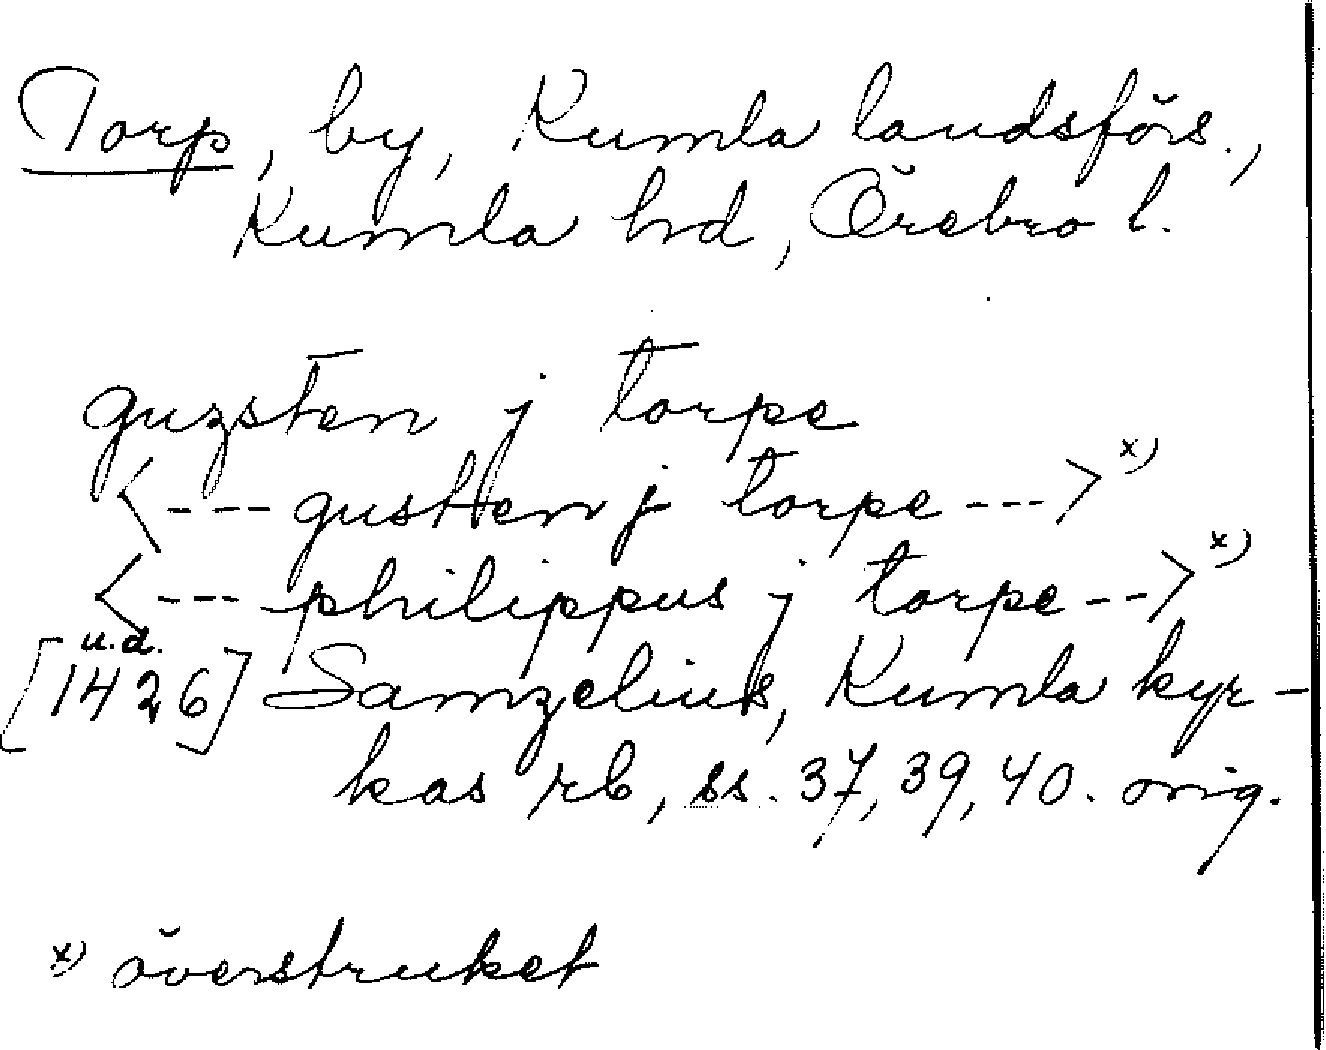 Torp, by, Kumla landsförs.,
Kumla hd, Örebro l.
guzsten j torpe
<---gusten j torpe---> x)
<---philippus j torpe--> x)
u.d.
[1426] Samzelius, Kumla kyr-
kas rb, ss. 37, 39, 40. orig.
x) överstruket